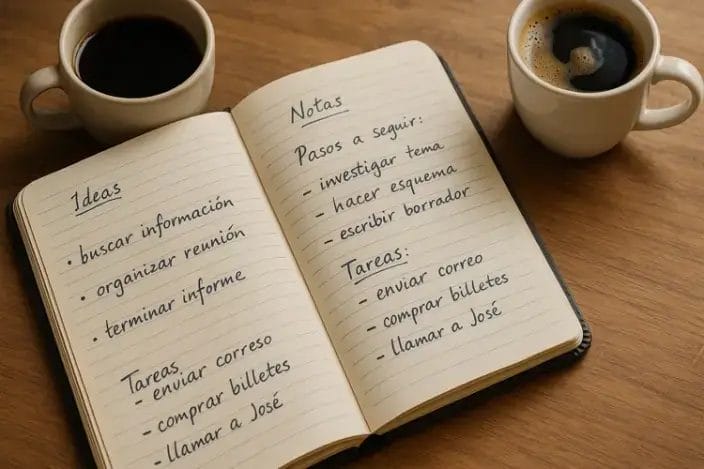 Ideas
• buscar información
• organizar reunión
• terminar informe
Tareas
- enviar correso
- comprar billetes
- llamar a José
Notas
Pasos a seguir:
- investigar tema
- hacer esquema
- escribir borrador
Tareas:
- enviar correo
- comprar billetes
- llamar a José